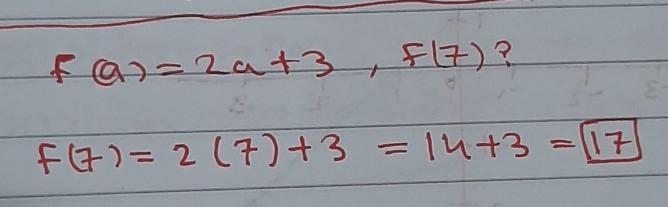 f(a) = 2a + 3 , f(7)?
f(7) = 2(7) + 3 = 14 + 3 = 17